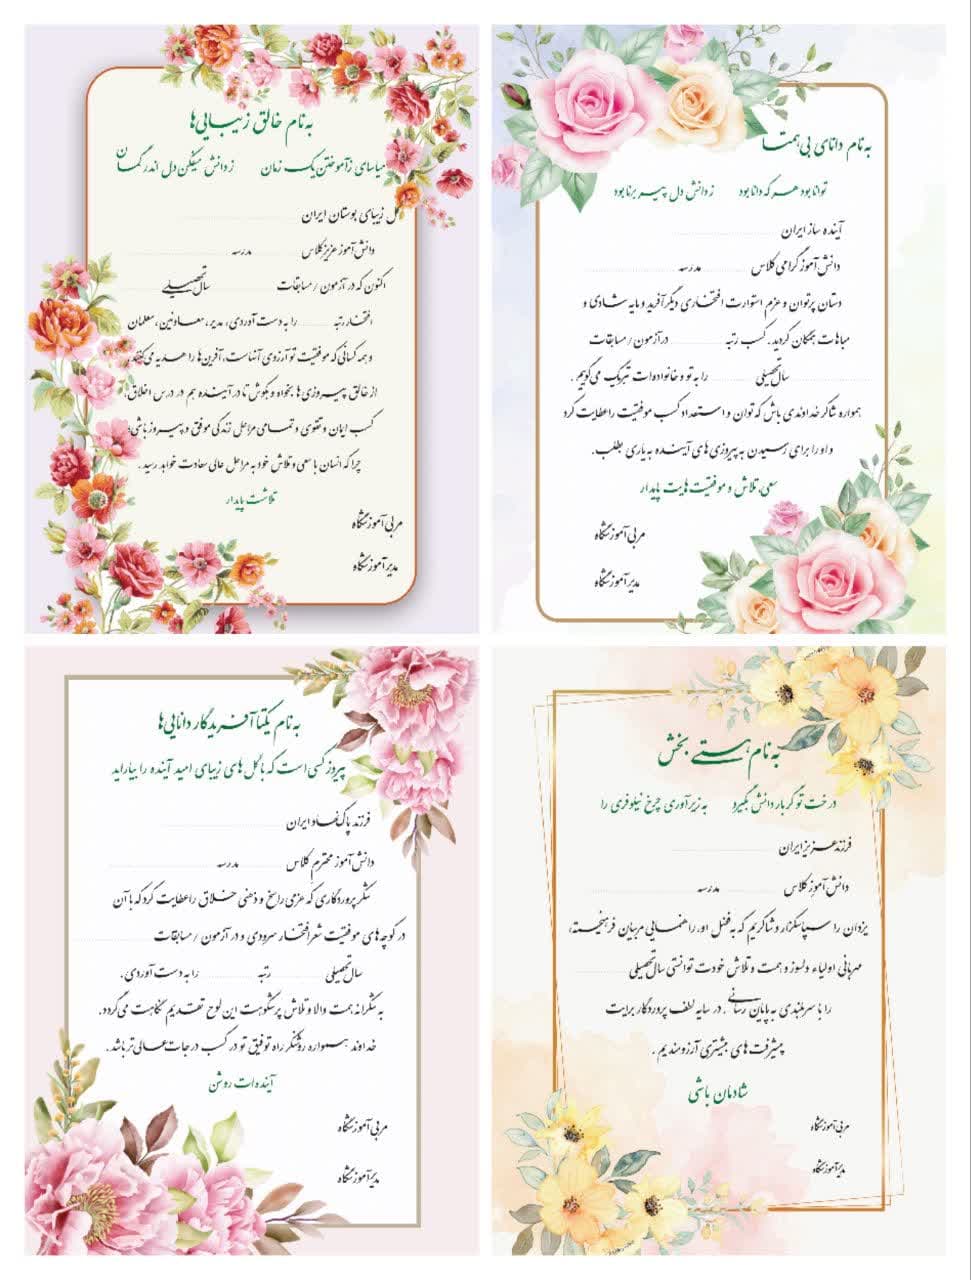 به نام دانای بی‌همتا
توانا بود هر که دانا بود ز دانش دل پیر برنا بود
آینده ساز ایران
دانش‌آموز گرامی کلاس مدرسه
دستان پرتوان و عزم استوارت افتخاری دیگر آفرید و مایه شادی و
مباهات همگان گردید. کسب رتبه در آزمون / مسابقات
سال تحصیلی را به تو و خانواده‌ات تبریک می‌گوییم.
همواره شاکر خداوندی باش که توان و استعداد کسب موفقیت را عطایت کرد
و او را برای رسیدن به پیروزی های آینده به یاری بطلب.
سعی، تلاش و موفقیت هایت پایدار
مربی آموزشگاه
مدیر آموزشگاه
به نام خالق زیبایی‌ها
میاسای ز آموختن یک زمان ز دانش میفکن دل اندر گمان
گل زیبای بوستان ایران
دانش‌آموز عزیز کلاس مدرسه
اکنون که در آزمون / مسابقات سال تحصیلی
افتخار رتبه را به دست آوردی، مدیر، معاونین، معلمان
و همه کسانی که موفقیت تو آرزوی آنهاست، آفرین ها را هدیه می‌کنند
از خالق پیروزی ها بخواه و بکوش تا در آینده هم در درس اخلاق،
کسب ایمان و تقوی و تمامی مراحل زندگی موفق و پیروز باشی
چرا که انسان با سعی و تلاش خود به مراحل عالی سعادت خواهد رسید.
تلاشت پایدار
مربی آموزشگاه
مدیر آموزشگاه
به نام هستی بخش
درخت تو گر بار دانش بگیرد به زیر آوری چرخ نیلوفری را
فرزند عزیز ایران
دانش‌آموز کلاس مدرسه
یزدان را سپاسگزار و شاکریم که به فضل او، راهنمایی مربیان فرهیخته،
مهربانی اولیاء دلسوز و همت و تلاش خودت توانستی سال تحصیلی
را با سربلندی به پایان رسانی. در سایه لطف پروردگار برایت
پیشرفت های بیشتری آرزومندیم.
شادمان باشی
مربی آموزشگاه
مدیر آموزشگاه
به نام یکتا آفریدگار دانایی‌ها
پیروز کسی است که با گل های زیبای امید آینده را بیاراید
فرزند پاک نهاد ایران
دانش‌آموز محترم کلاس مدرسه
شکر پروردگاری که عزمی راسخ و ذهنی خلاق را عطایت کرد که با آن
در کوچه های موفقیت شعر افتخار سرودی و در آزمون / مسابقات
سال تحصیلی رتبه را به دست آوردی.
به شکرانه همت والا و تلاش پرشکوهت این لوح تقدیم نگاهت می‌گردد.
خداوند همواره روشنگر راه توفیق تو در کسب درجات عالی‌تر باشد.
آینده‌ات روشن
مربی آموزشگاه
مدیر آموزشگاه